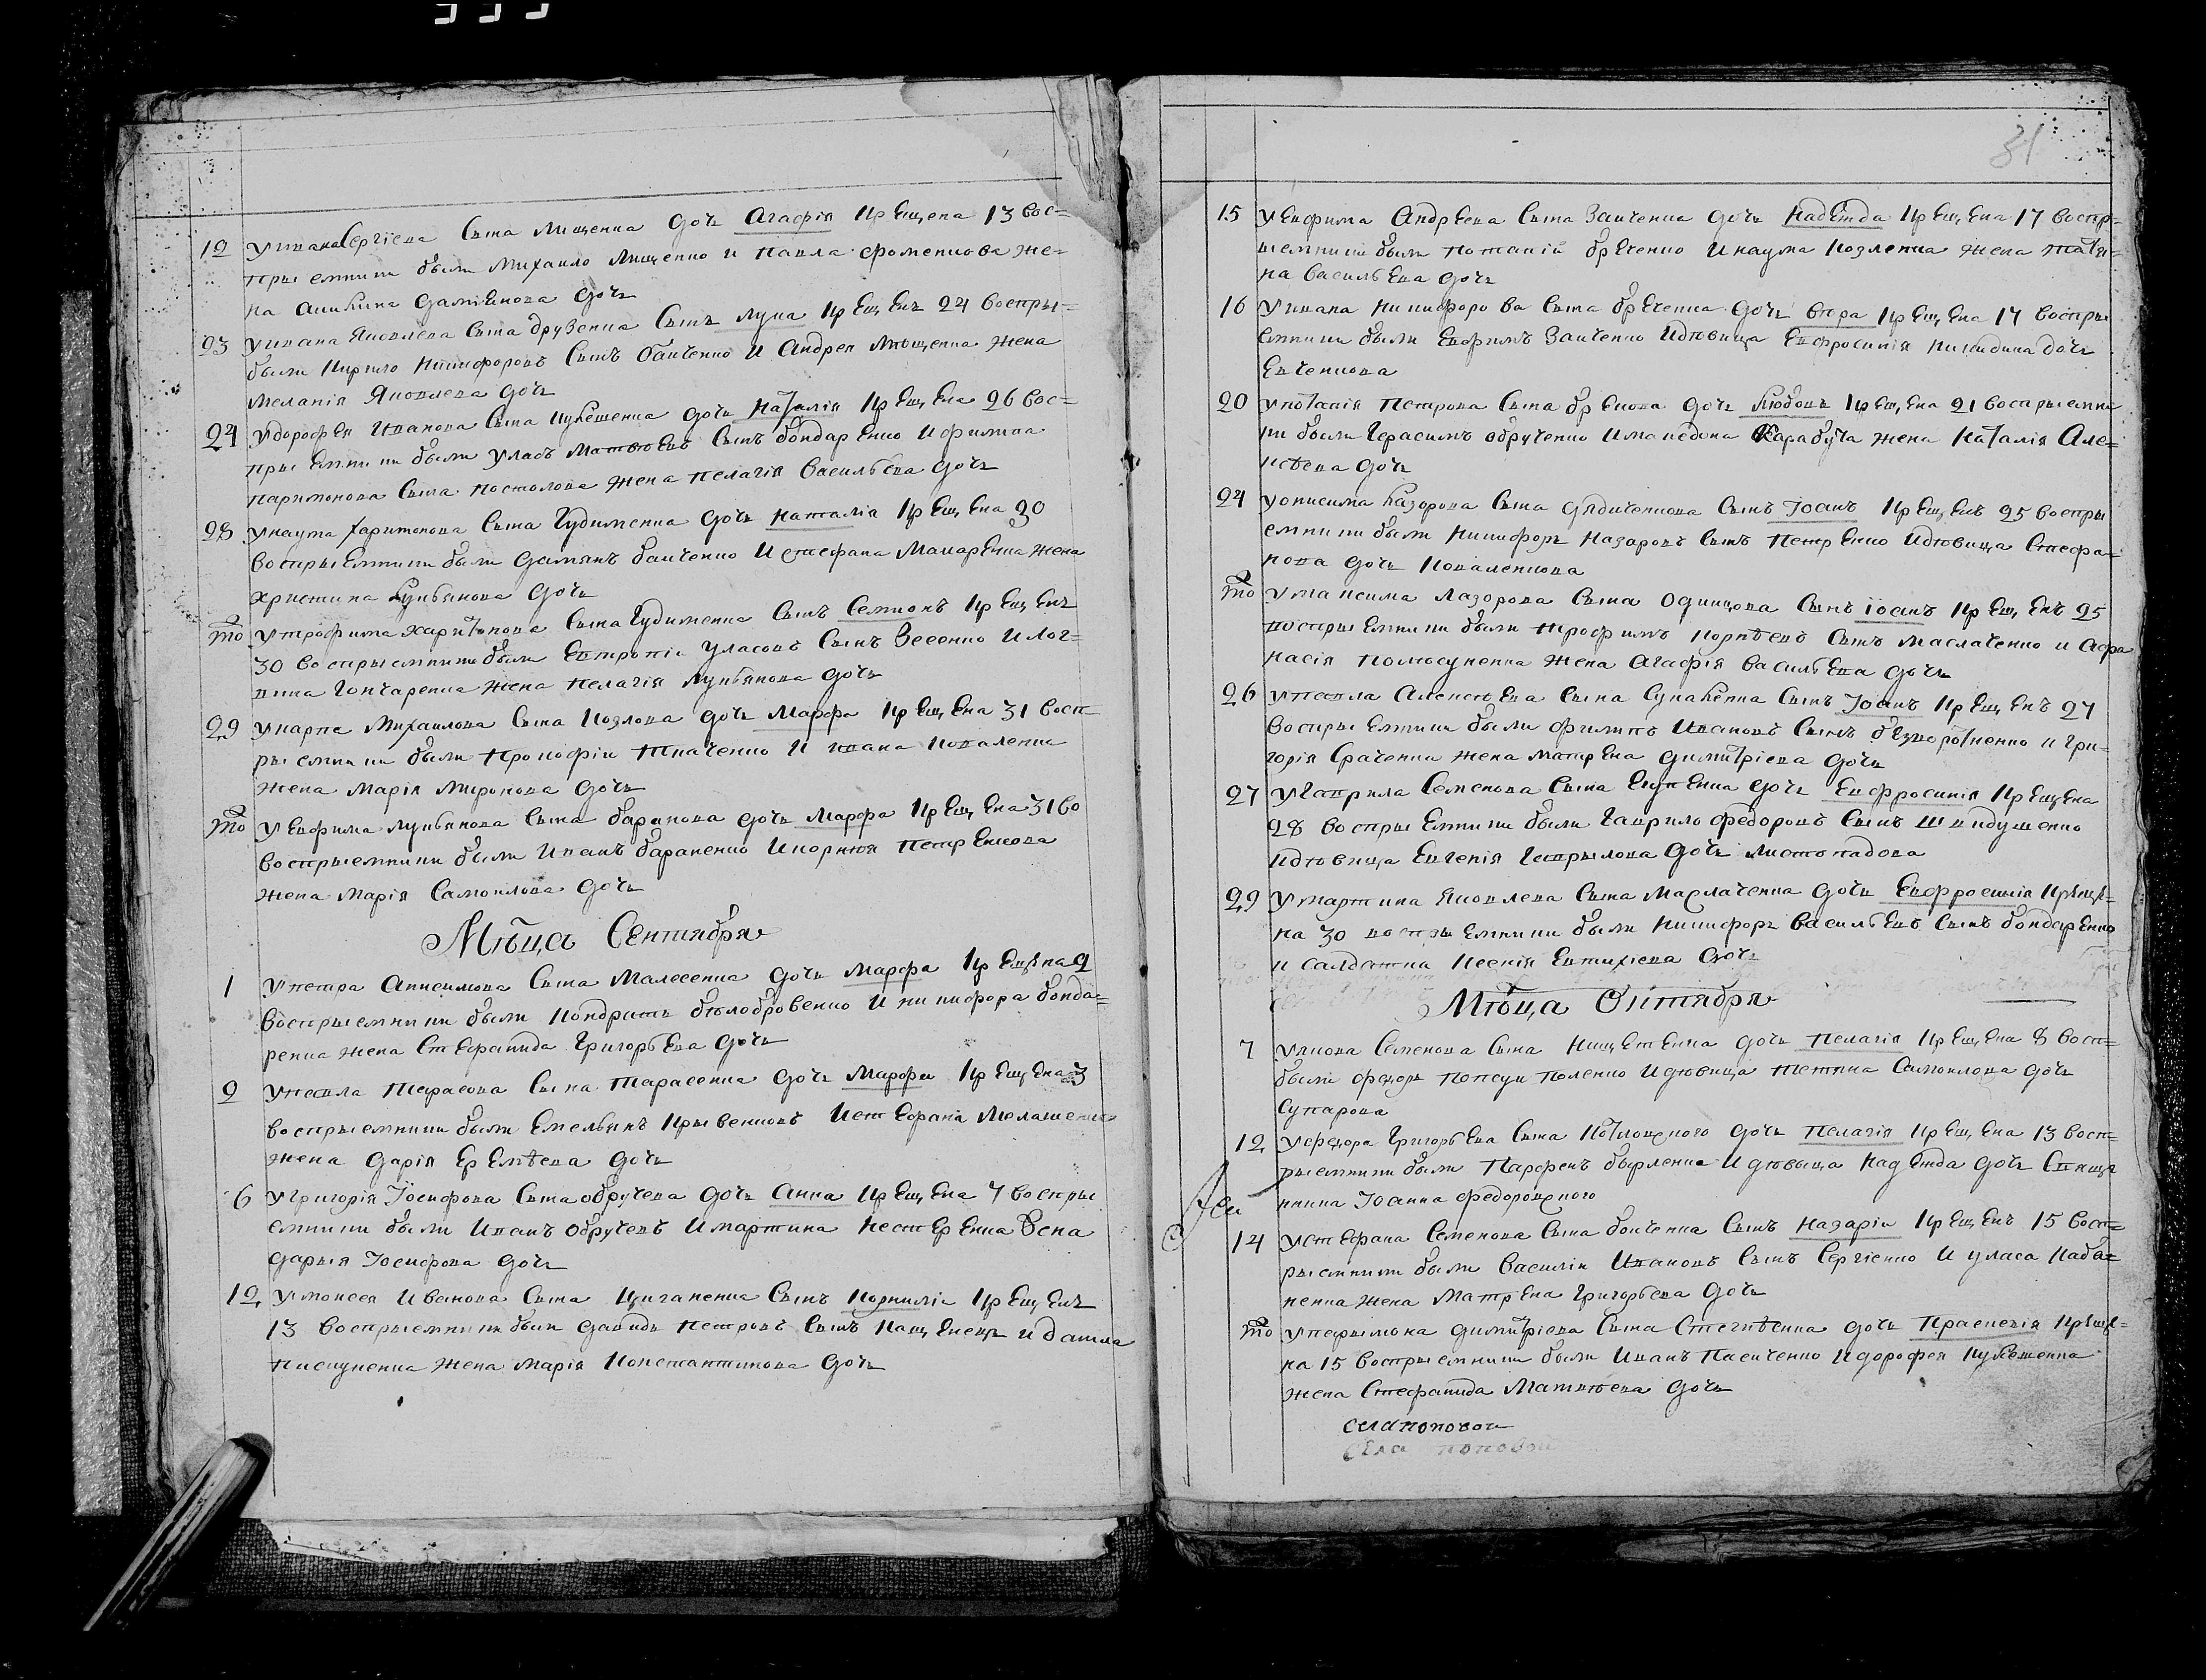 31
12 У ивана Сергіева Сына Лищенка дочь Агафія крещена 13 вос=
пріемники были Михаило Лищенко и Павла Фоменкова же=
на Акилина Даміянова дочь
23 У ивана Яковлева Сына друзенка Сынъ лука крещенъ 24 воспры=
были Кирило Никифоровъ Сынъ баиченко и Андрея Лющенка жена
Меланія Яковлева дочь
24 У дорофея Иванова Сына кулешенка дочь Наталія крещена 26 вос=
пры емники были уласъ Матвеевъ Сынъ бондаренко и филипа
паримонова Сына постолова жена пелагія васильева дочь
28 У наума харитонова Сына Гудименка дочь Наталія крещена 30
воспрыемники были дамянъ баиченко и стефана Макаренка жена
христина лукьянова дочь
то У трофима харитонова Сына Гудименка Сынъ Семионъ крещенъ
30 воспрыемники были Евтропіи уласовъ Сынъ Зеленко и лог=
вина гончаренка жена пелагія лукьянова дочь
29 У карпа Михаилова Сына Козлова дочь Марфа крещена 31 восп=
рыемники были Прокофіи Ткаченко и ивана коваленка
жена марія миронова дочь
то У Евфима лукьянова Сына баранова дочь Марфа крещена 31 во
воспрыемники были Иванъ бараненко и корнея петренкова
жена марія Самоилова дочь
Мѣца Сентября
1 У петра Анисимова Сына Малесенка дочь Марфа крещена 2
воспрыемники были кондратъ бѣлобровенко и никифора бонда=
ренка жена Стефанида Григорьева дочь
2 У павла Тарасова Сына Тарасенка дочь Марфа крещена 3
воспрыемники были Емельянъ Крывенковъ и стефана Мелашенка
жена дарія Еремѣева дочь
6 У Григорія Іосифова Сына обручева дочь Анна крещена 7 воспры
емники были Иванъ обручевъ и мартина нестеренка жена
дарья Іосифова дочь
12 У моисея Иванова Сына Циганенка Сынъ Корнилій крещенъ
13 воспрыемники были давидъ петровъ Сынъ
жена марія Константинова дочь
15 У Евфима Андреева Сына Заиченка дочь Надѣжда крещена 17 воспр=
ыемники были потапій бреченко и наума козленка жена татья=
на васильева дочь
16 У ивана Никифорова Сына бреченка дочь вѣра крещена 17 воспры
емники были Евфимъ Заиченко и дювица Евфросинія никидина дочь
Евченкова
20 У потапія Петрова Сына бреткова дочь Любовъ крещена 21 воспрыемни
ки были Герасимъ обрученко и македона Карабута жена Наталія Але=
ксѣева дочь
24 У онисима лазорова Сына дядиченкова Сынъ Іоанъ крещенъ 25 воспры
емники были Никифоръ Назаровъ Сынъ Петренко и дювица Стефа=
нова дочь коваленкова
то У максима лазорова Сына Одинцова Сынъ іоанъ крещенъ 25
воспрыемники были трофимъ корнѣевъ Сынъ маслаченко и Афа
насія жена Агафія васильева дочь
26 У павла Алексѣева Сына Сукаленка Сынъ Іоанъ крещенъ 27
воспрыемники были филипъ Ивановъ Сынъ и гри=
горія Сраченка жена матрена димитріева дочь
27 У Гаврила Семенова Сына дочь Евфросинія крещена
28 воспрыемники были Гаврило федоровъ Сынъ швидушенко
и дювица Евгенія Гаврылова дочь листопадова
29 У мартина Яковлева Сына Маслаченка дочь Евфросинія креще=
на 30 воспрыемники были Никифоръ васильевъ Сынъ бондаренко
и салдатка Ксенія Евтихіева дочь
Мѣца Октября
7 У якова Семенова Сына Нищетенка дочь Пелагія крещена 8 восп=
были федоръ попсуиполенко и дювица тетяна Самоилова дочь
Сухарова
12 У федора Григорьева Сына Котлоцкого дочь Пелагія крещена 13 восп=
рыемники были Парфенъ бырленко и дювыца Надежда дочь Свяще
нника Іоанна федоровского
14 У стефана Семенова Сына боиченка Сынъ Назаріи крещенъ 15 восп=
рыемники были василіи Ивановъ Сынъ Сергіенко и уласа кабо=
ненка жена Матрена Григорьева дочь
то У парымона димитріева Сына Стегнѣенка дочь Праскевія креще=
на 15 воспрыемники были Иванъ Пасиченко и дорофея кулешенка
жена Стефанида Матвѣева дочь
села поповои
села поповои